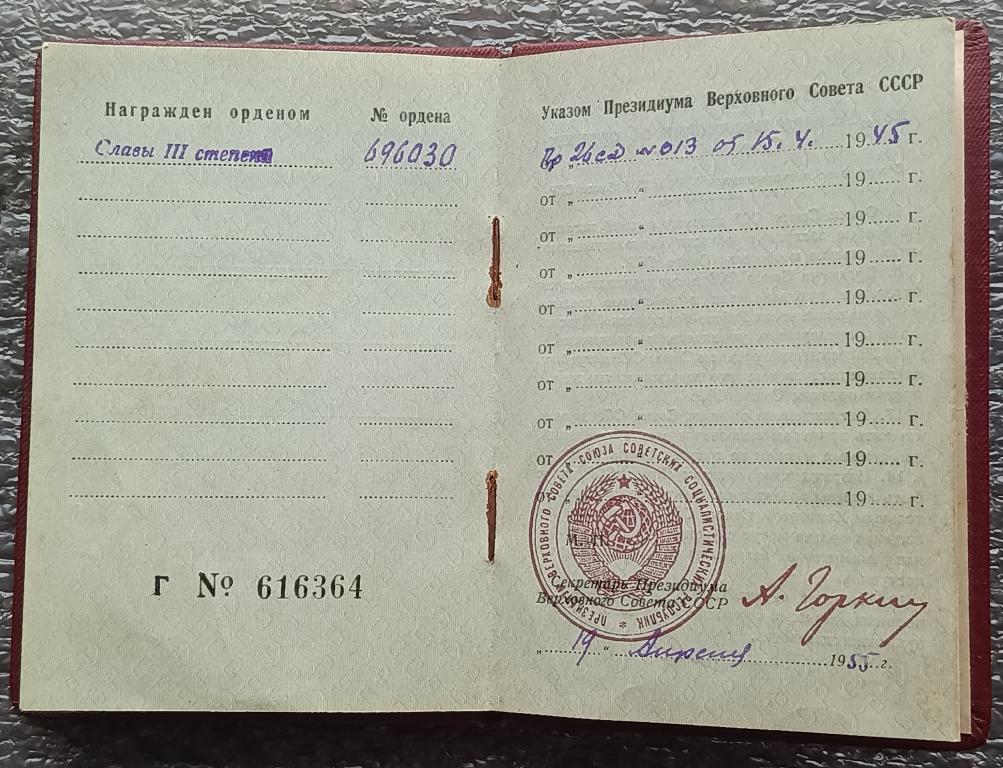 Награжден орденом № ордена
Славы III степени 696030
Г № 616364
Указом Президиума Верховного Совета СССР
Пр 26 сд № 013 от 15.4. 1945 г.
от „ “ 19 г.
от „ “ 19 г.
от „ “ 19 г.
от „ “ 19 г.
от „ “ 19 г.
от „ “ 19 г.
от „ “ 19 г.
от „ “ 19 г.
от „ “ 19 г.
ПРЕЗИДИУМ ВЕРХОВНОГО СОВЕТА СОЮЗА СОВЕТСКИХ СОЦИАЛИСТИЧЕСКИХ РЕСПУБЛИК
М. П.
Секретарь Президиума
Верховного Совета СССР А. Горкин
„ 19 “ Апреля 1955 г.